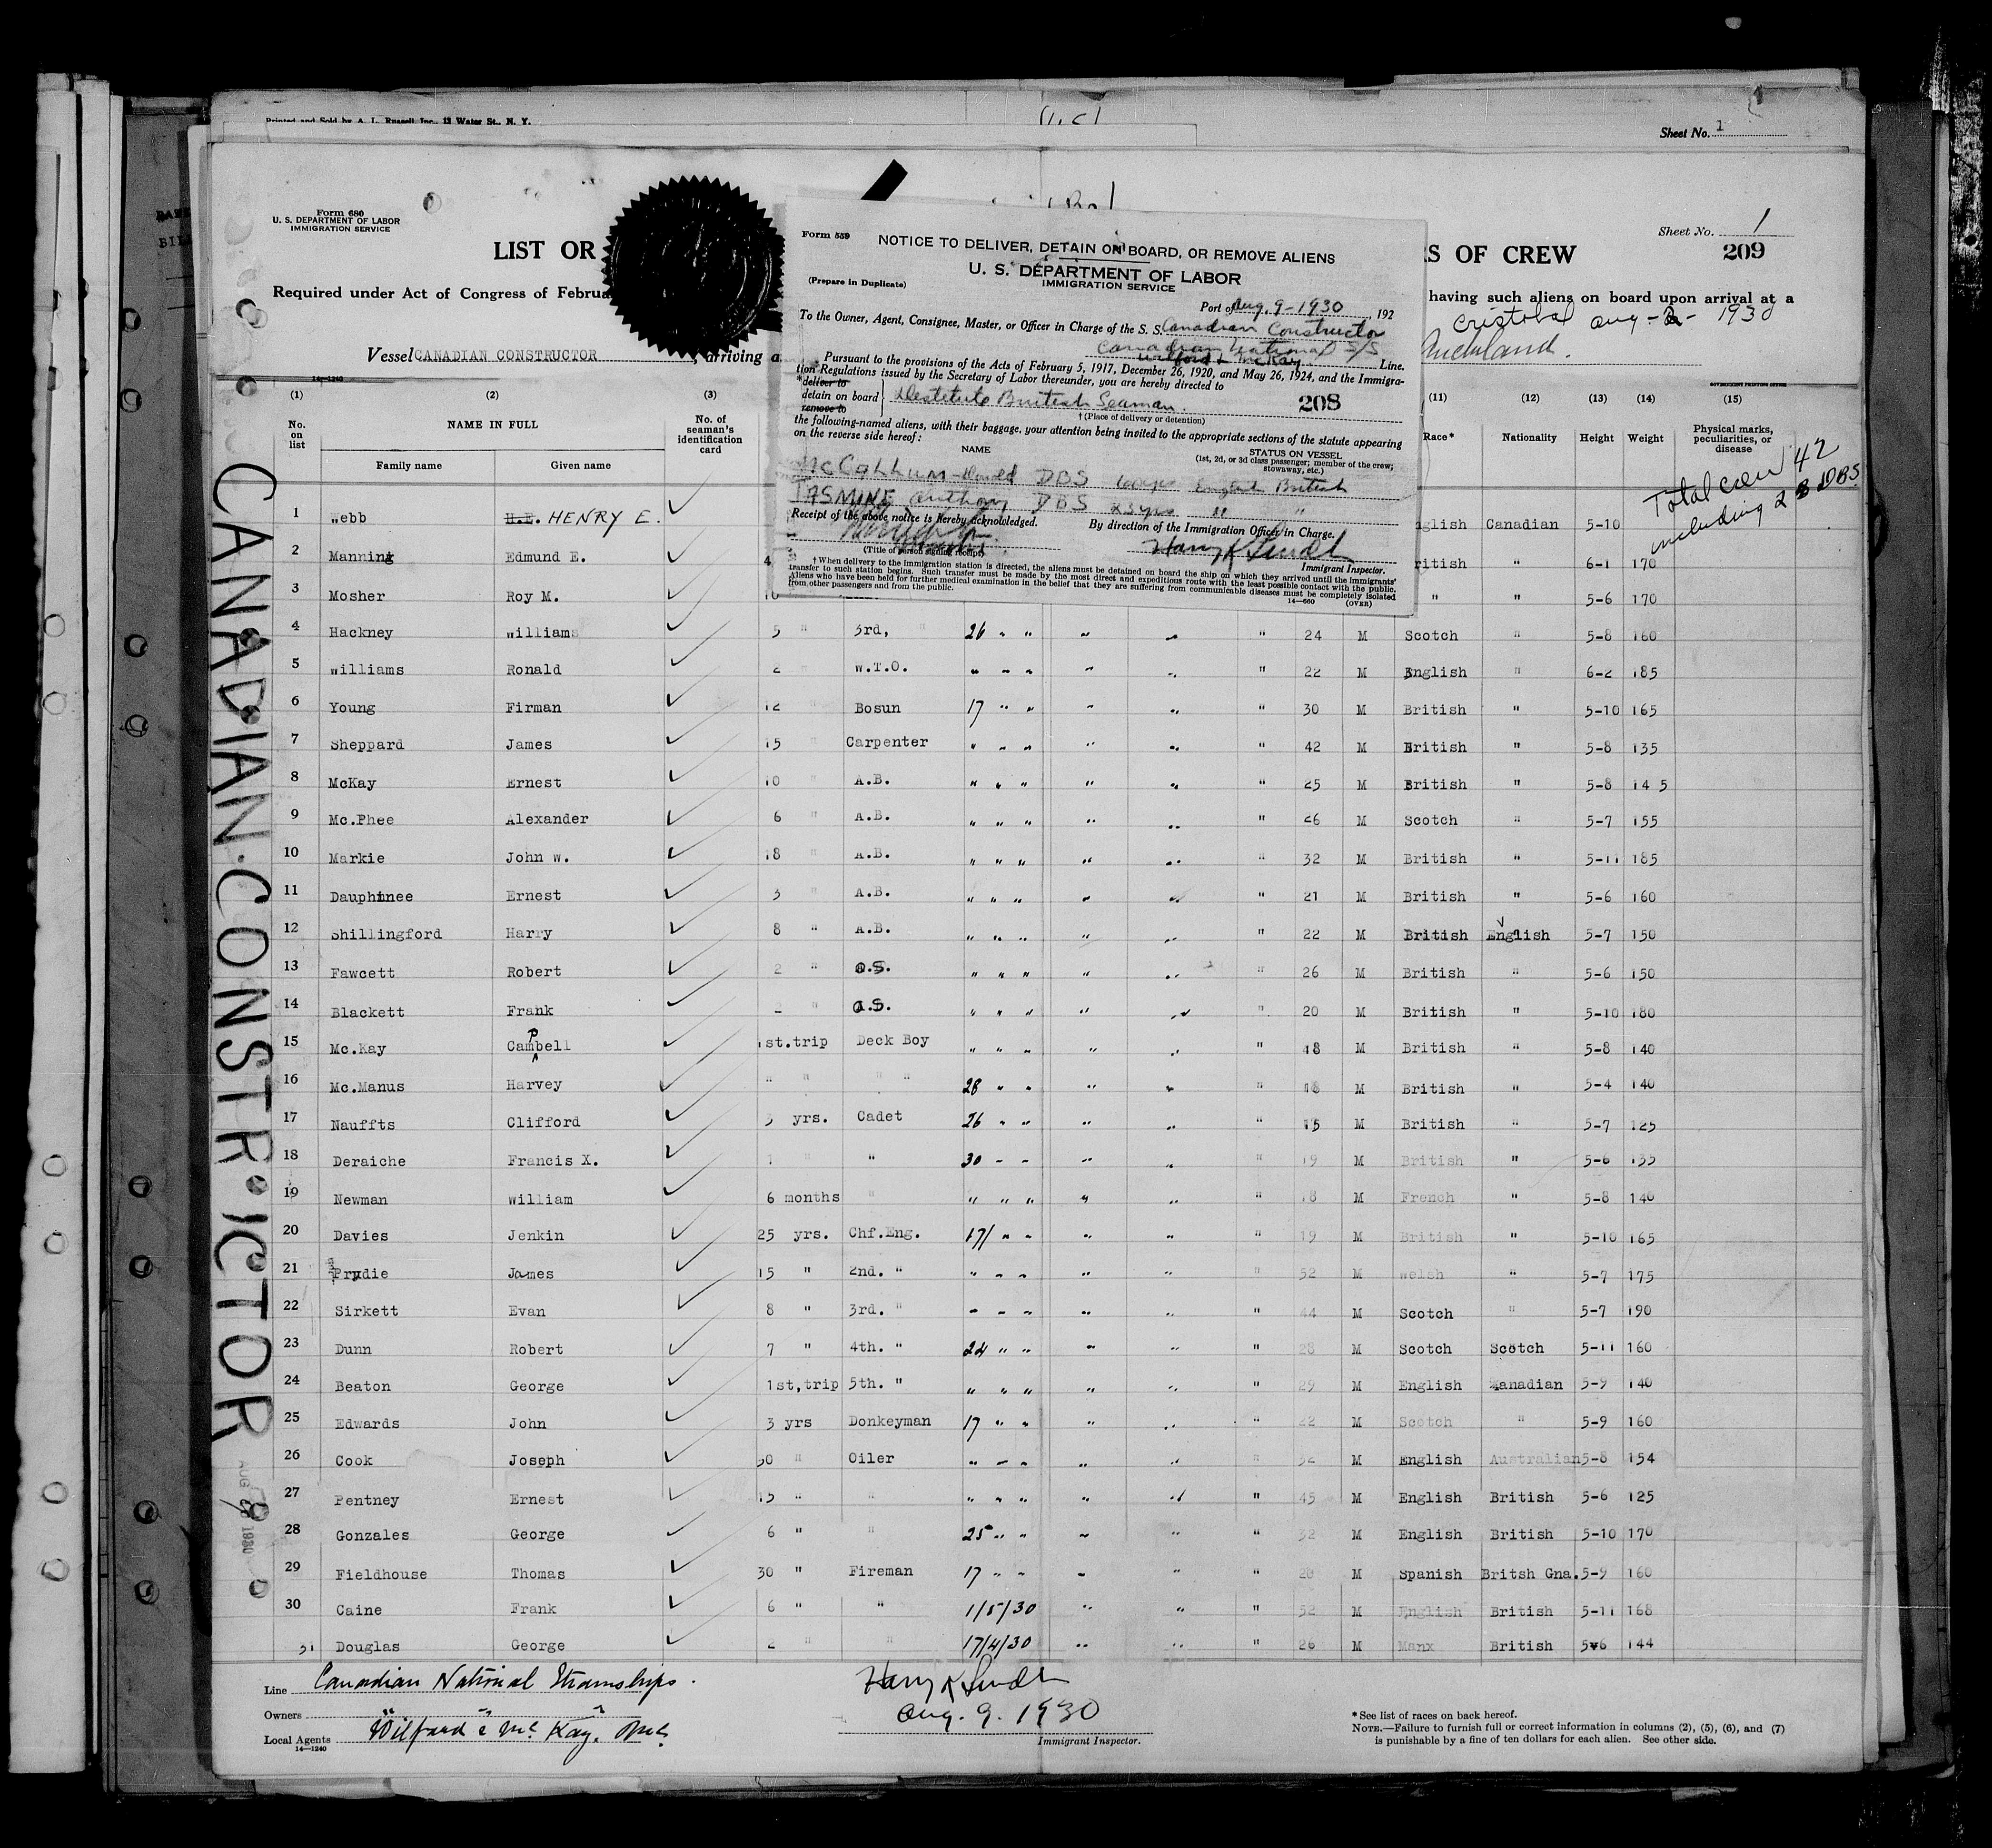 Printed and Sold by A. L. Russell Inc., 12 Water St., N. Y.
Sheet No. 1
Form 680
U. S. DEPARTMENT OF LABOR
IMMIGRATION SERVICE
Sheet No. 1
LIST OR
RS OF CREW
209
Required under Act of Congress of Februa
having such aliens on board upon arrival at a
Cristobal Aug-2-1930
Vessel CANADIAN CONSTRUCTOR, arriving a
Auckland.
Form 559
NOTICE TO DELIVER, DETAIN ON BOARD, OR REMOVE ALIENS
U. S. DEPARTMENT OF LABOR
IMMIGRATION SERVICE
(Prepare in Duplicate)
Port of Aug. 9-1930, 192
To the Owner, Agent, Consignee, Master, or Officer in Charge of the S. S. Canadian Constructor
Canadian National S/S
Wilford & McKay Line.
Pursuant to the provisions of the Acts of February 5, 1917, December 26, 1920, and May 26, 1924, and the Immigra-
tion Regulations issued by the Secretary of Labor thereunder, you are hereby directed to
*deliver to
detain on board
remove to
Destitute British Seaman.
208
† (Place of delivery or detention)
the following-named aliens, with their baggage, your attention being invited to the appropriate sections of the statute appearing
on the reverse side hereof:
NAME
STATUS ON VESSEL
(1st, 2d, or 3d class passenger; member of the crew; stowaway, etc.)
McCALLUM - Donald DBS English British
JASMINE Anthony DBS 23yrs " "
Receipt of the above notice is hereby acknowledged.
By direction of the Immigration Officer in Charge.
(Title of person signing receipt)
Immigrant Inspector.
† When delivery to the immigration station is directed, the aliens must be detained on board the ship on which they arrived until the immigrants'
transfer to such station begins. Such transfer must be made by the most direct and expeditious route with the least possible contact with the public.
Aliens who have been held for further medical examination in the belief that they are suffering from communicable diseases must be completely isolated
from other passengers and from the public.
14—660
(OVER)
14—1240
GOVERNMENT PRINTING OFFICE
(1) (2) (3) (11) (12) (13) (14) (15)
No. on list
NAME IN FULL
Family name
Given name
No. of seaman's identification card
Race*
Nationality
Height
Weight
Physical marks, peculiarities, or disease
Total crew 42
including 2 DBS.
1 Webb H.E. HENRY E. nglish Canadian 5-10
2 Manning Edmund E. 4 ritish " 6-1 170
3 Mosher Roy M. 10 " " 5-6 170
4 Hackney Williams 5 " 3rd, " 26 " " " " " 24 M Scotch " 5-8 160
5 Williams Ronald 2 W.T.O. " " " " " " 22 M English " 6-2 185
6 Young Firman 12 " Bosun 17 " " " " " 30 M British " 5-10 165
7 Sheppard James 15 " Carpenter " " " " " " 42 M British " 5-8 135
8 McKay Ernest 10 " A.B. " " " " " " 25 M British " 5-8 14 5
9 Mc.Phee Alexander 6 " A.B. " " " " " " 26 M Scotch " 5-7 155
10 Markie John W. 18 " A.B. " " " " " " 32 M British " 5-11 185
11 Dauphinee Ernest 3 " A.B. " " " " " " 21 M British " 5-6 160
12 Shillingford Harry 8 " A.B. " " " " " " 22 M British English 5-7 150
13 Fawcett Robert 2 " O.S. " " " " " " 26 M British " 5-6 150
14 Blackett Frank 2 " O.S. " " " " " " 20 M British " 5-10 180
15 Mc.Kay Campbell 1st.trip Deck Boy " " " " " " 18 M British " 5-8 140
16 Mc.Manus Harvey " " " " 28 " " " " " 18 M British " 5-4 140
17 Nauffts Clifford 3 yrs. Cadet 26 " " " " " M British " 5-7 125
18 Deraiche Francis X. 1 " " 30 " " " " " 19 M British " 5-6 135
19 Newman William 6 months " " " " " " " 18 M French " 5-8 140
20 Davies Jenkin 25 yrs. Chf.Eng. 17/ " " " " " 19 M British " 5-10 165
21 James 15 " 2nd. " " " " " " " 52 M Welsh " 5-7 175
22 Sirkett Evan 8 " 3rd. " " " " " " " 44 M Scotch " 5-7 190
23 Dunn Robert 7 " 4th. " 24 " " " " " 28 M Scotch Scotch 5-11 160
24 Beaton George 1st,trip 5th. " " " " " " " 29 M English Canadian 5-9 140
25 Edwards John 3 yrs Donkeyman 17 " " " " " 22 M Scotch " 5-9 160
26 Cook Joseph 30 " Oiler " " " " " " 52 M English Australian 5-8 154
27 Pentney Ernest 15 " " " " " " " " 45 M English British 5-6 125
28 Gonzales George 6 " " 25 " " " " " 32 M English British 5-10 170
29 Fieldhouse Thomas 30 " Fireman 17 " " " " " 28 M Spanish Britsh Gna. 5-9 160
30 Caine Frank 6 " " 1/5/30 " " " 52 M English British 5-11 168
31 Douglas George 2 " " 17/4/30 " " " 26 M Manx British 5-6 144
CANADIAN CONSTRUCTOR
AUG 9 1930
Line Canadian National Steamships.
Owners " " "
Local Agents Wilford & Mc Kay. Inc.
14—1240
Aug. 9. 1930
Immigrant Inspector.
* See list of races on back hereof.
NOTE.—Failure to furnish full or correct information in columns (2), (5), (6), and (7)
is punishable by a fine of ten dollars for each alien. See other side.